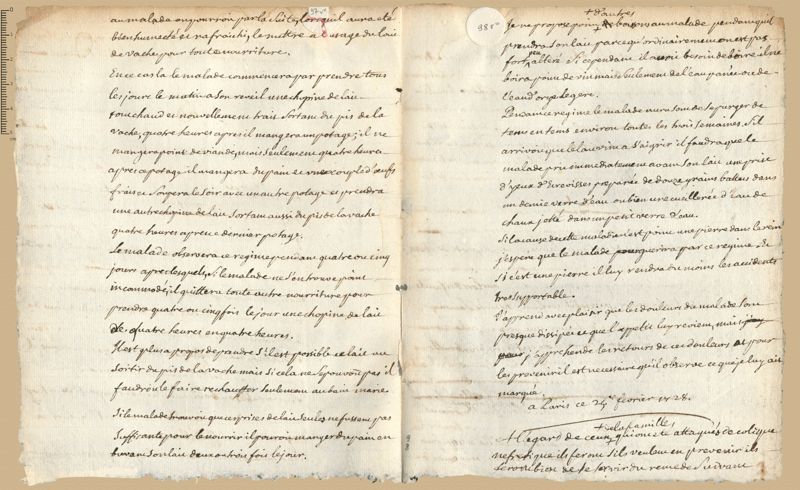 97 v°
au malade on pourron par la Suite, lorsquil aura eté
bien humecté et rafraichi, le mettre a l'usage du lait
de vache pour toute nourriture.
En ce cas la le malade commencera par prendre tous
les jours le matin a son reveil une chopine de lait
tout chaud et nouvellement trait Sortant du pis de la
vache, quatre heures apres il mangera un potage; il ne
mangera point de viande, mais Seulement quatre heures
apres ce potage il mangera du pain et une couple d'œufs
frais et Soupera le Soir avec un autre potage et prendra
une autre chopine de lait Sortant aussi du pis de la vache
quatre heures apres ce dernier potage.
Le malade observera ce regime pendant quatre ou cinq
jours apres lesquels, Si le malade ne S'en trouve point
incommodé, il quittera toute autre nourriture pour
prendre quatre ou cinq fois le jour une chopine de lait
de quatre heures en quatre heures.
Il est plus a propos de prendre S'il est possible ce lait au
Sortir du pis de la vache mais Si cela ne Se pouvoit pas il
faudroit le faire rechauffer Seulement au bain marie.
Si le malade trouvoit que ces prises de lait Seules ne fussent pas
Suffisantes pour le nourrir il pourroit manger du pain en
buvant Son lait deux ou trois fois le jour.
98 r°
+ d'autres
Je ne propose point + boisson au malade pendant qu'il
prendra Son lait parce qu'ordinairement on est pas
fort alteré. Si cependant il avoit besoin de boire il ne
boira point de vin mais Seulement de l'eau panée ou de
l'eau d'orge legere.
Pendant ce regime le malade aura Soin de Se purger de
tems en tems environ toutes les trois Semaines. S'il
arrivoit que le lait vint a S'aigrir il faudra que le
malade prit immediatement avant Son lait une prise
d'yeux d'Ecrevisses preparée de douze grains battus dans
un demie verre d'eau ou bien une cuillerée d'eau de
chaux jetté dans un petit verre d'eau.
Si la cause de cette maladie n'est point une pierre dans le rein
j'espere que le malade guerira par ce regime. Et
Si c'est une pierre il luy rendra du moins les accidents
tres Supportable.
J'apprend avec plaisir que les douleurs du malade Sont
presque dissipée et que l'appetit luy revient, mais
j'apprehende les retours de ces douleurs et pour
les prevenir il est necessaire qu'il observe ce que je luy ait
marqué.
a Paris ce 24e fevrier 1728.
+ de la famille
A l'egard de ceux + qui ont eté attaqués de colique
nefretique ils feront S'ils veulent en prevenir ils
de Se Servir du remede Suivant